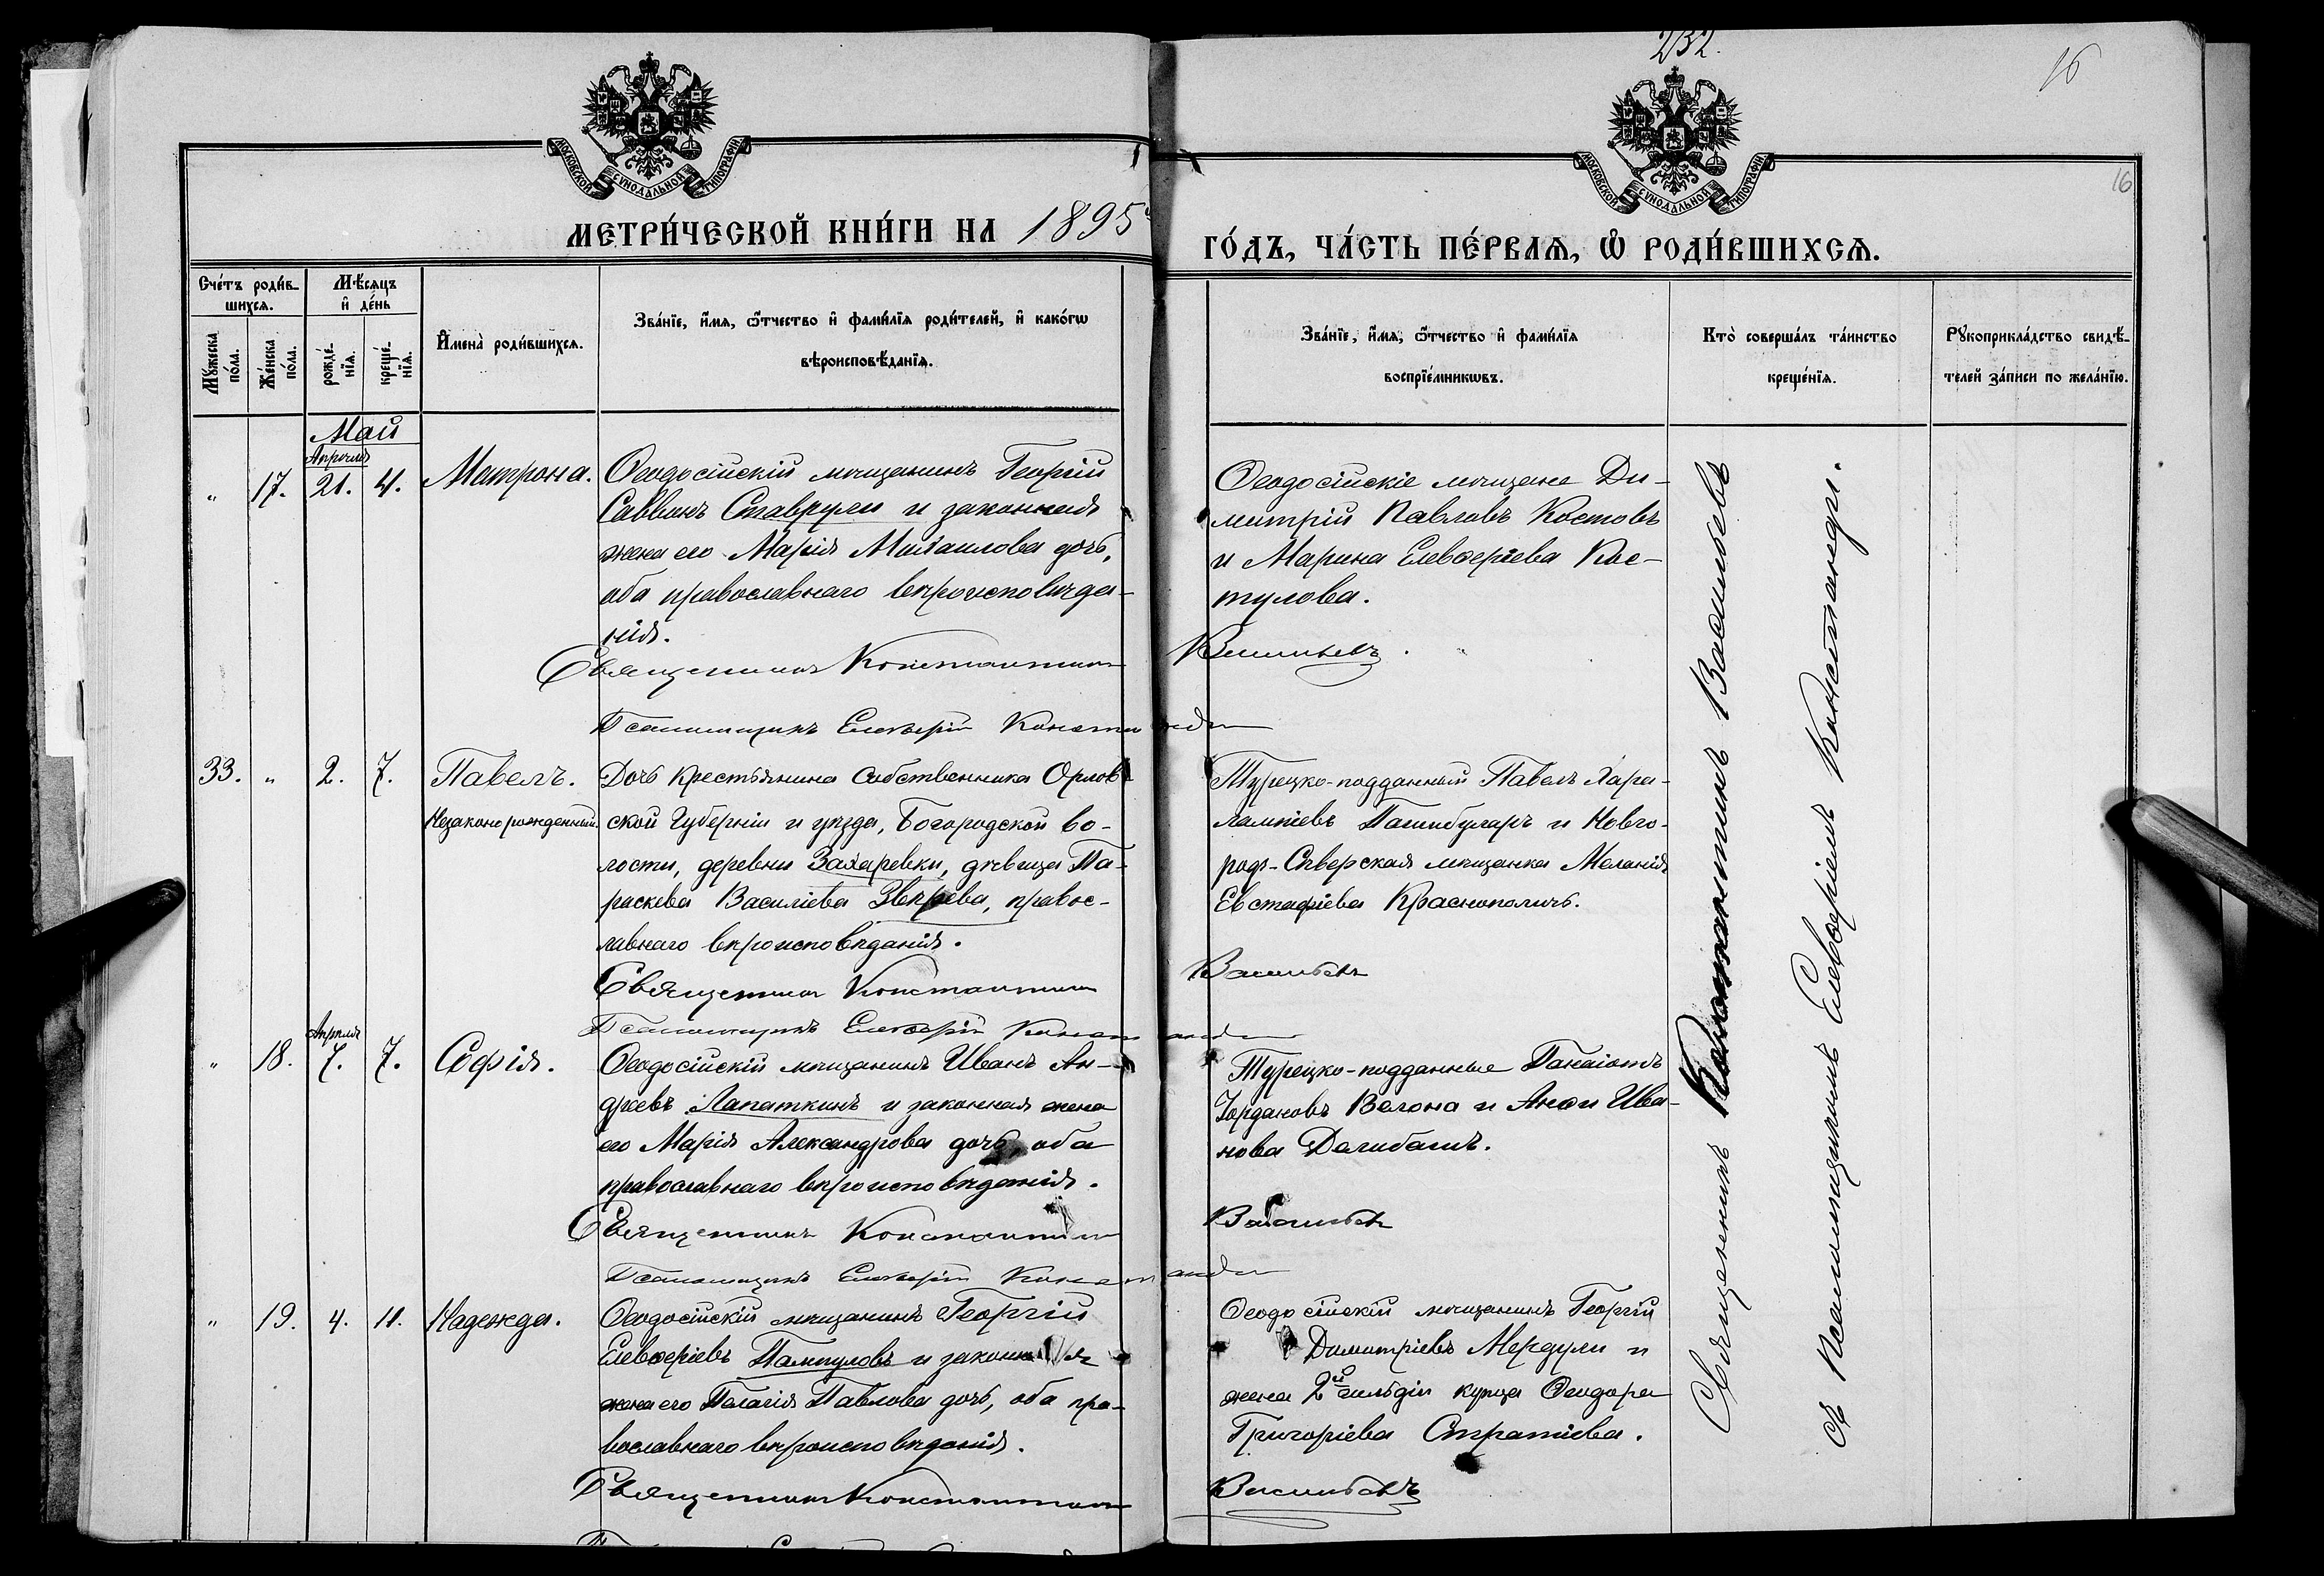 232.
16
16
МОСКОВСКОЙ СѴНОДАЛЬНОЙ ТИПОГРАФІИ
МОСКОВСКОЙ СѴНОДАЛЬНОЙ ТИПОГРАФІИ
МЕТРИ́ЧЕСКОЙ КНИ́ГИ НА 1895
ГО́ДЪ, ЧА́СТЬ ПЕ́РВАѦ, Ѡ҆ РОДИ́ВШИХСѦ.
Сче́тъ роди́в-
шихсѧ.
Мѣ́сѧцъ
и҆ де́нь
Мꙋ́жеска
по́ла.
Же́нска
по́ла.
рожде́-
нїѧ.
креще́-
нїѧ.
И҆мена̀ роди́вшихсѧ.
Зва́нїе, и҆́мѧ, ѻ҆́тчество и҆ фами́лїѧ роди́телей, и҆ како́гѡ
вѣроисповѣ́данїѧ.
Зва́нїе, и҆́мѧ, ѻ҆́тчество и҆ фами́лїѧ
воспрїе́мникѡвъ.
Кто̀ соверша́лъ та́инство
креще́нїѧ.
Рꙋкоприкла́дство свидѣ́-
телей за́писи по жела́нїю.
Май
Апрѣля
" 17. 21. 4. Матрона.
Ѳеодосійскій мѣщанинъ Георгій
Саввинъ Ставрули и законная
жена его Марія Михаилова дочь,
оба православнаго вѣроисповѣда-
нія.
Ѳеодосійскіе мѣщане Ди-
митрій Павловъ Костовъ
и Марина Елевѳеріева Кас-
тулова.
Священникъ Константинъ Васильевъ
Псаломщикъ Елевѳерій Константи
33. " 2. 7. Павелъ.
Незаконорожденный.
Дочь крестьянина собственника Орлов-
ской Губерніи и уѣзда, Богородской во-
лости, деревни Захаревки, дѣвица Па-
раскева Василіева Звѣрева, правос-
лавнаго вѣроисповѣданія.
Турецко-подданный Павелъ Хара-
лампіевъ и Новго-
род-Сѣверская мѣщанка Меланія
Евстафіева Краснополичъ.
Священникъ Константинъ Васильевъ
Псаломщикъ Елевѳерій
Апрѣля
" 18. 7. 7. Софія.
Ѳеодосійскій мѣщанинъ Иванъ Ан-
дреевъ Лапаткинъ и законная жена
его Марія Александрова дочь, оба
православнаго вѣроисповѣданія.
Турецко-подданные Панаіотъ
Іордановъ Велона и Ива-
нова Делибашъ.
Священникъ Константинъ Васильевъ
Псаломщикъ Елевѳерій
" 19. 4. 11. Надежда.
Ѳеодосійскій мѣщанинъ Георгій
Елевѳеріевъ Пампуловъ и законная
жена его Пелагія Павлова дочь, оба пра-
вославнаго вѣроисповѣданія.
Ѳеодосійскій мѣщанинъ Георгій
Димитріевъ Мердули и
жена 2й гильдіи купца Ѳеодора
Григоріева Стратіева.
Священникъ Константинъ Васильевъ
Священникъ Константинъ Васильевъ
съ Псаломщикомъ Елевѳеріемъ Константи.